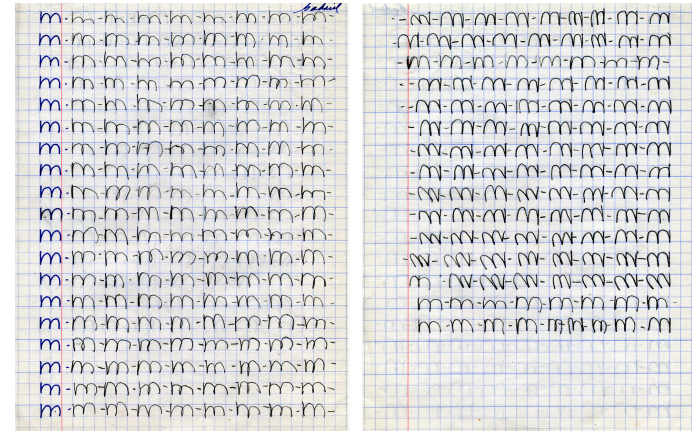 Gabriel
m-m-m-m-m-m-m-m-m-
m-m-m-m-m-m-m-m-m-
m-m-m-m-m-m-m-m-m-
m-m-m-m-m-m-m-m-m-
m-m-m-m-m-m-m-m-m-
m-m-m-m-m-m-m-m-m-
m-m-m-m-m-m-m-m-m-
m-m-m-m-m-m-m-m-m-
m-m-m-m-m-m-m-m-m-
m-m-m-m-m-m-m-m-m-
m-m-m-m-m-m-m-m-m-
m-m-m-m-m-m-m-m-m-
m-m-m-m-m-m-m-m-m-
m-m-m-m-m-m-m-m-m-
m-m-m-m-m-m-m-m-m-
m-m-m-m-m-m-m-m-m-
m-m-m-m-m-m-m-m-m-
m-m-m-m-m-m-m-m-m-
m-m-m-m-m-m-m-m-m-
--m-m-m-m-m-m-m-m-m
m-m-m-m-m-m-m-m-m
-m-m-m-m-m-m-m-m-
-m-m-m-m-m-m-m-m
--m-m-m-m-m-m-m-m
m-m-m-m-m-m-m-m
-m-m-m-m-m-m-m-m
-m-m-m-m-m-m-m-m
-m-m-m-m-m-m-m-m
-m-m-m-m-m-m-m-m
-m-m-m-m-m-m-m-m
-m-m-m-m-m-m-m-m
m-m-m-m-m-m-m-m
m-m-m-m-m-m-m-m-
m-m-m-m-m-m-m-m-m